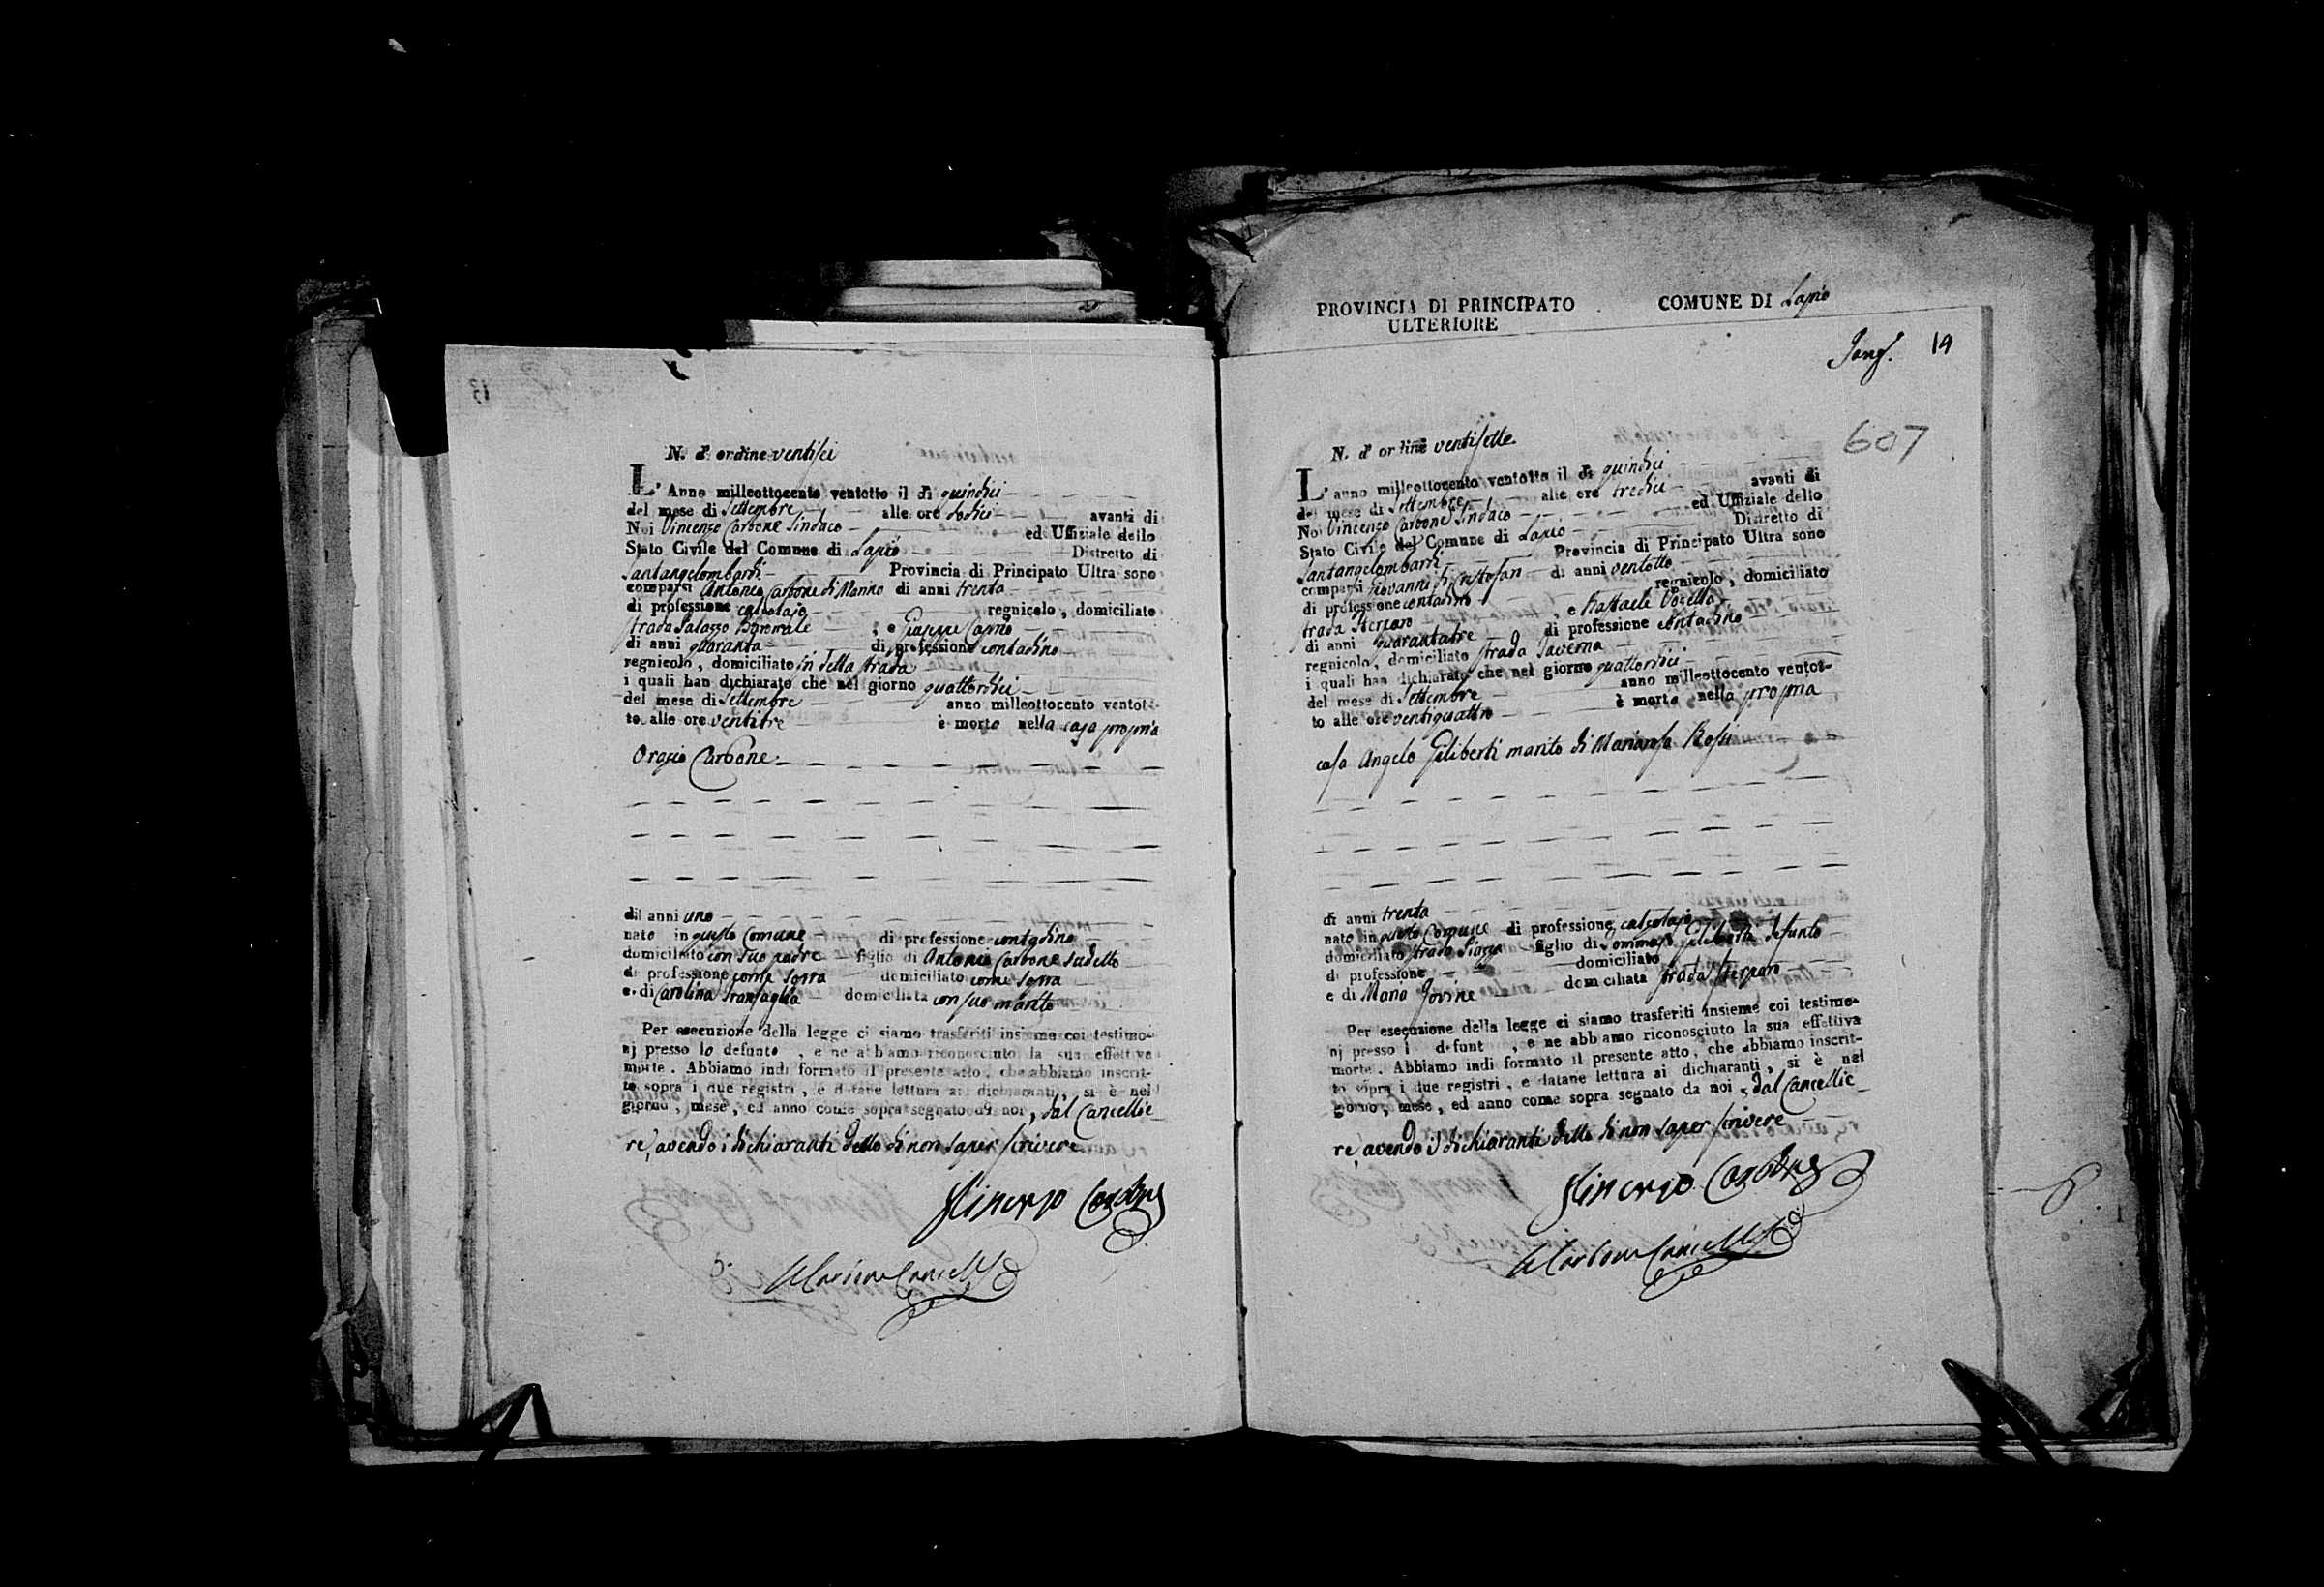 N. d'ordine ventisei
L'Anno milleottocento ventotto il di quindici
del mese di Settembre alle ore dodici avanti di
Noi Vincenzo Carbone Sindaco ed Uffiziale dello
Stato Civile del Comune di Lapio Distretto di
Santangelombardi Provincia di Principato Ultra sono
comparsi Antonio Carbone di Marino di anni trenta
di professione calzolajo regnicolo, domiciliato
strada Palazzo Baronale, e Giuseppe Caprio
di anni quaranta di professione contadino
regnicolo, domiciliato in detta strada
i quali han dichiarato che nel giorno quattordici
del mese di Settembre anno milleottocento ventot-
to alle ore ventitre è morto nella casa propria
Orazio Carbone
di anni uno
nato in questo Comune di professione contadino
domiciliato con suo padre figlio di Antonio Carbone sudetto
di professione come sopra domiciliato come sopra
e di Carolina Tranfaglia domiciliata con suo marito
Per esecuzione della legge ci siamo trasferiti insieme coi testimo-
nj presso lo defunto, e ne abbiamo riconosciuto la sua effettiva
morte. Abbiamo indi formato il presente atto, che abbiamo inscrit-
to sopra i due registri, e datane lettura ai dichiaranti, si è nel
giorno, mese, ed anno come sopra segnato da noi, dal Cancellie-
re, avendo i dichiaranti detto di non saper scrivere
Vincenzo Carbone
PROVINCIA DI PRINCIPATO COMUNE DI Lapio
ULTERIORE
14
607
N. d'ordine ventisette
L'anno milleottocento ventotto il di quindici
del mese di Settembre alle ore tredici avanti di
Noi Vincenzo Carbone Sindaco ed Uffiziale dello
Stato Civile del Comune di Lapio Distretto di
Santangelombardi Provincia di Principato Ultra sono
comparsi Giovanni di Cristofan di anni ventotto
di professione contadino regnicolo, domiciliato
strada Stercaro, e Raffaele Vozella
di anni quarantatre di professione contadino
regnicolo, domiciliato strada Taverna
i quali han dichiarato che nel giorno quattordici
del mese di Settembre anno milleottocento ventot-
to alle ore ventiquattro è morto nella propria
casa Angelo Ziliberti marito di Marianna Rossi
di anni trenta
nato in questo Comune di professione calzolajo
domiciliato strada Piazza figlio di Tommaso Ziliberti defunto
di professione domiciliato
e di Maria Jovine domiciliata strada Stercaro
Per esecuzione della legge ci siamo trasferiti insieme coi testimo-
nj presso l defunt , e ne abbiamo riconosciuto la sua effettiva
morte. Abbiamo indi formato il presente atto, che abbiamo inscrit-
to sopra i due registri, e datane lettura ai dichiaranti, si è nel
giorno, mese, ed anno come sopra segnato da noi, dal Cancellie-
re, avendo i dichiaranti detto di non saper scrivere
Vincenzo Carbone